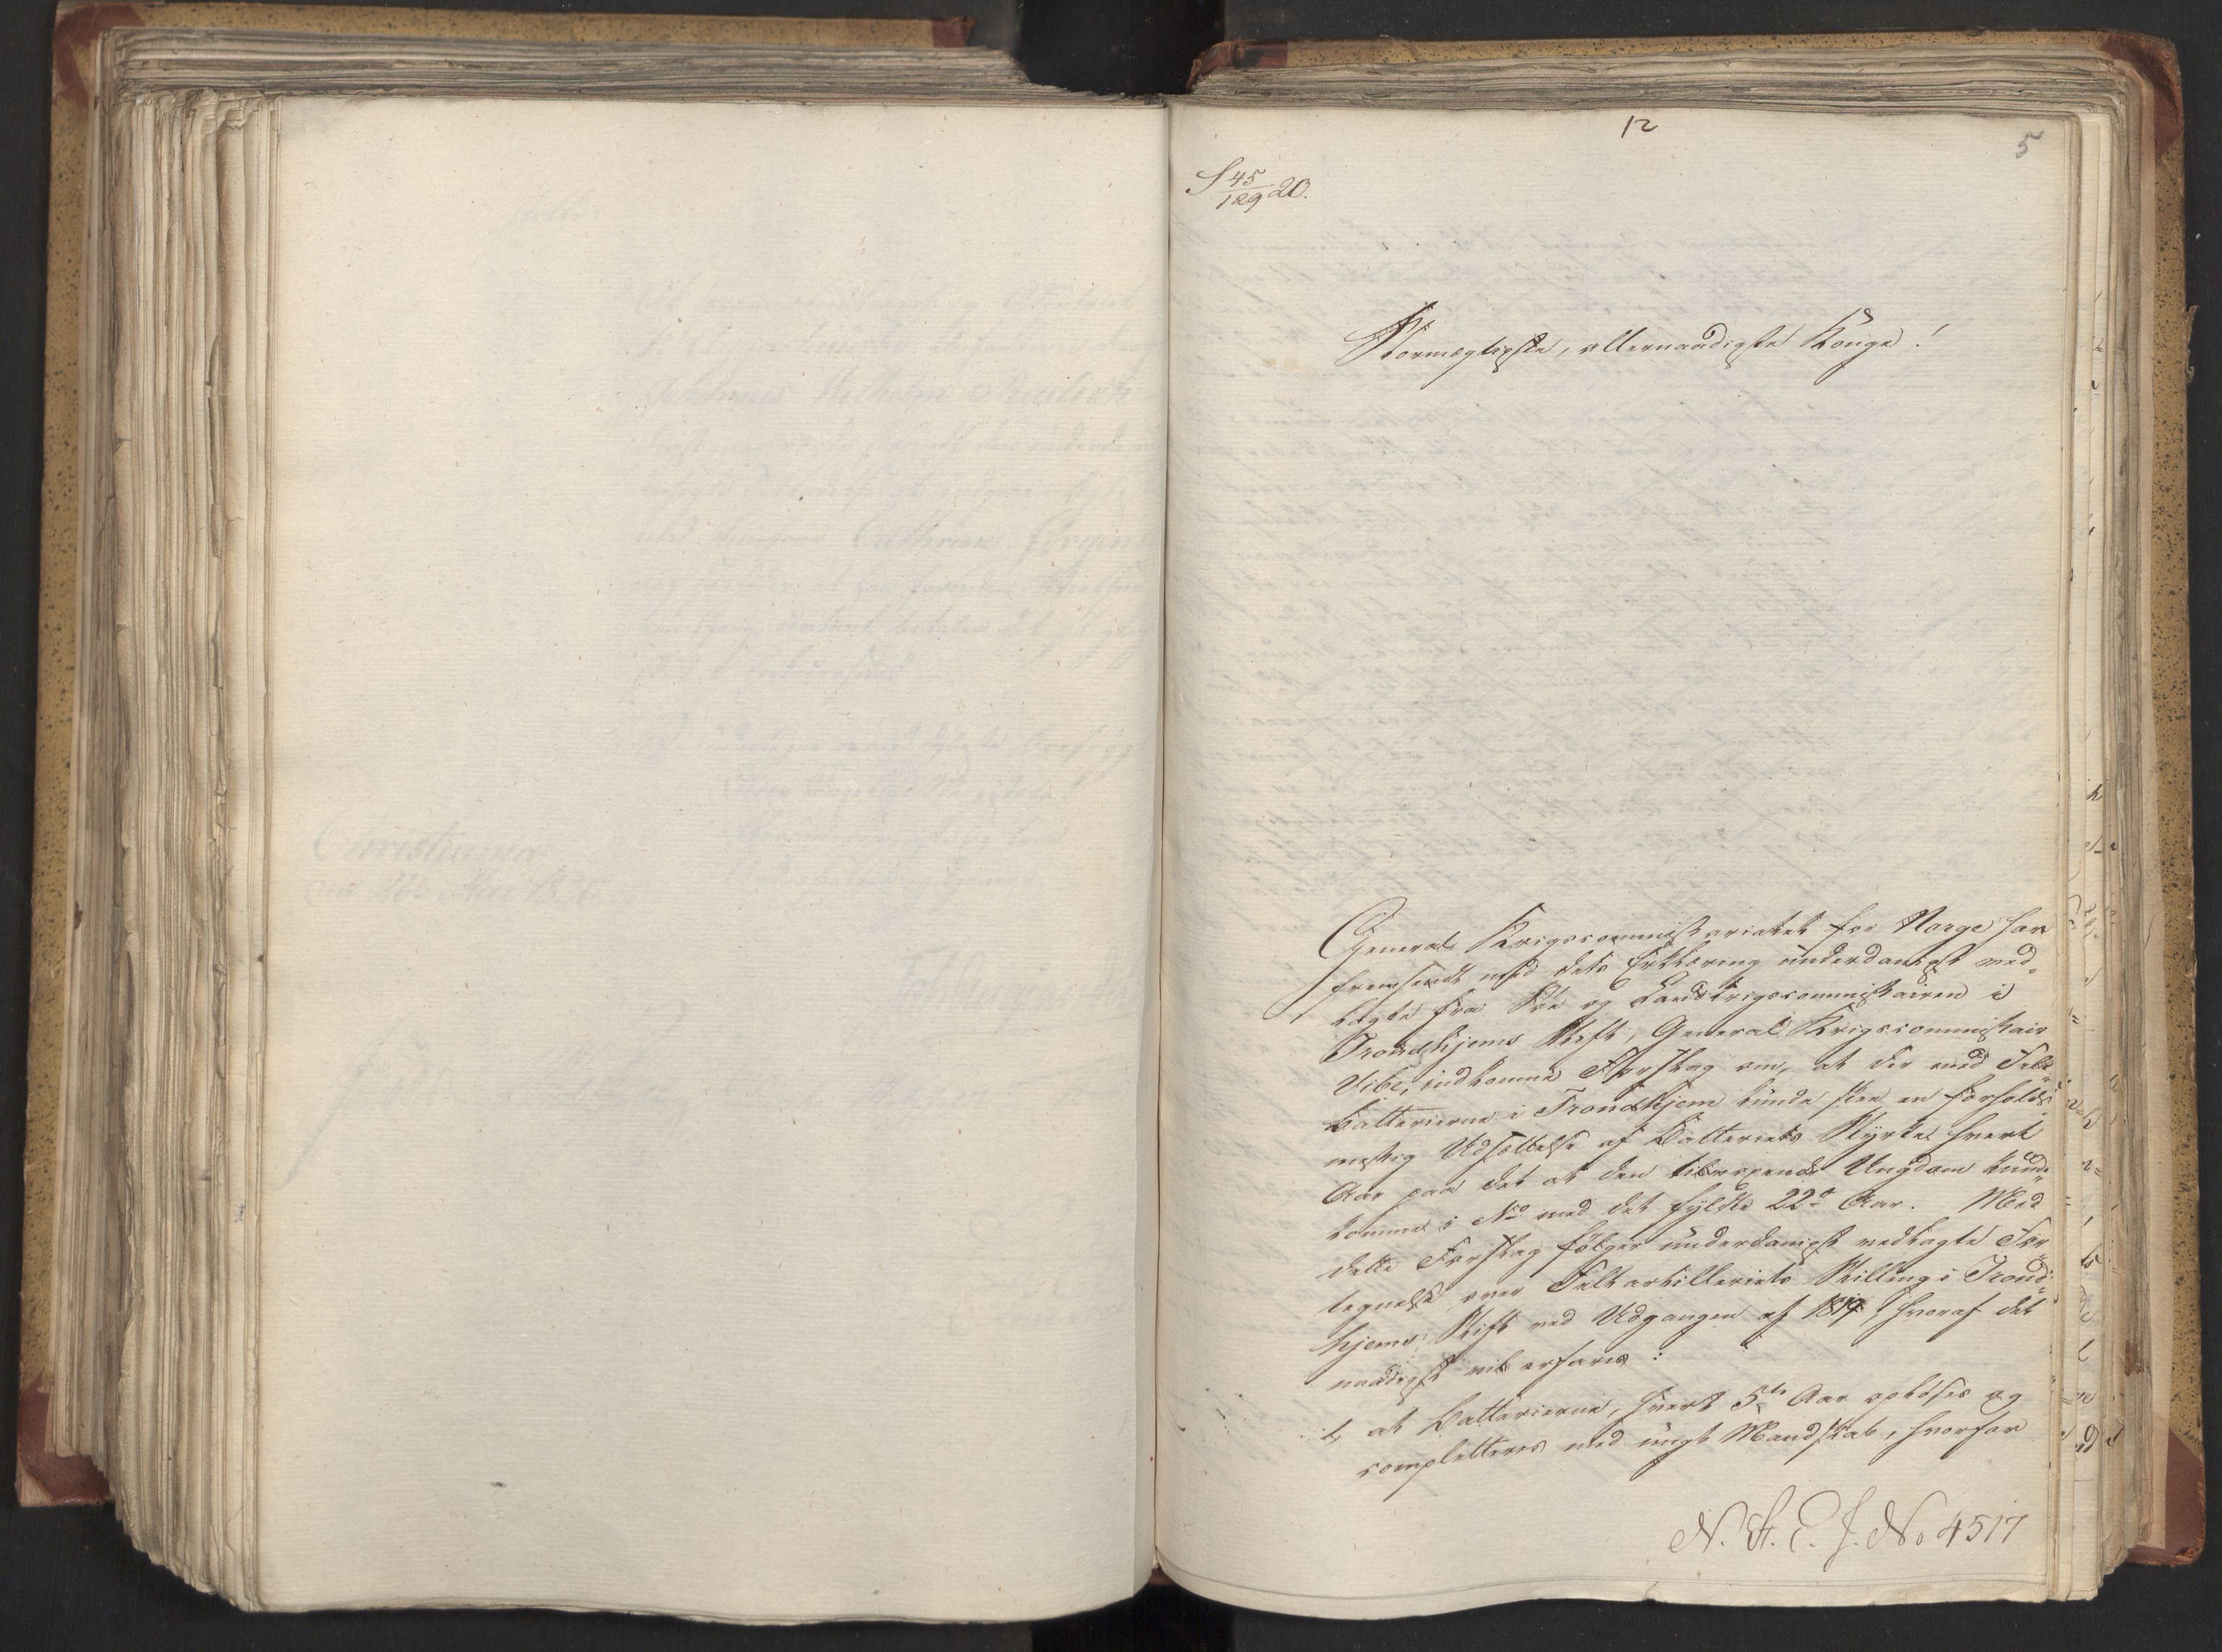 12
5
S 45/129 20.
Stormægtigste, allernaadigste Konge!
General Krigscommissariatet for Norge har
fremsendt med dets Erklæring underdanigst ved-
lagte fra Sø og Landkrigscommissairen i
Trondhjems Stift, General Krigscommissair
Vibe, indkomne Forslag om, at der ved Felt
batterierne i Trondhjem kunde skee en forholds
mæssig Udsættelse af Batteriets Styrke hvert
Aar paa det at den tilvoxende Ungdom kunde
komme i No med det fyldte 22de Aar. Med
dette Forslag følger underdanigst vedlagte For
tegnelse over Feltartilleriets Stilling i Trond-
hjems Stift ved Udgangen af 1819, hvoraf det
naadigst vil erfares:
1, at Batterierne, hvert 5te Aar opløses og
completteres med ungt Mandskab, hvorfor
N. St. E. J. No 4517